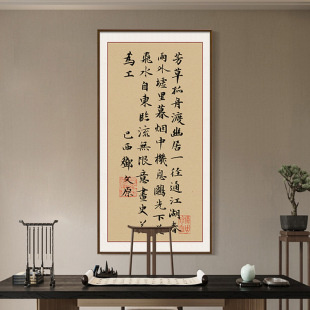 芳草孤舟渡幽居一徑通江湖春
雨外墟里暮烟中機息鷗先下花
飛水自東臨流無限意畫史若
為工
己酉鄧文原